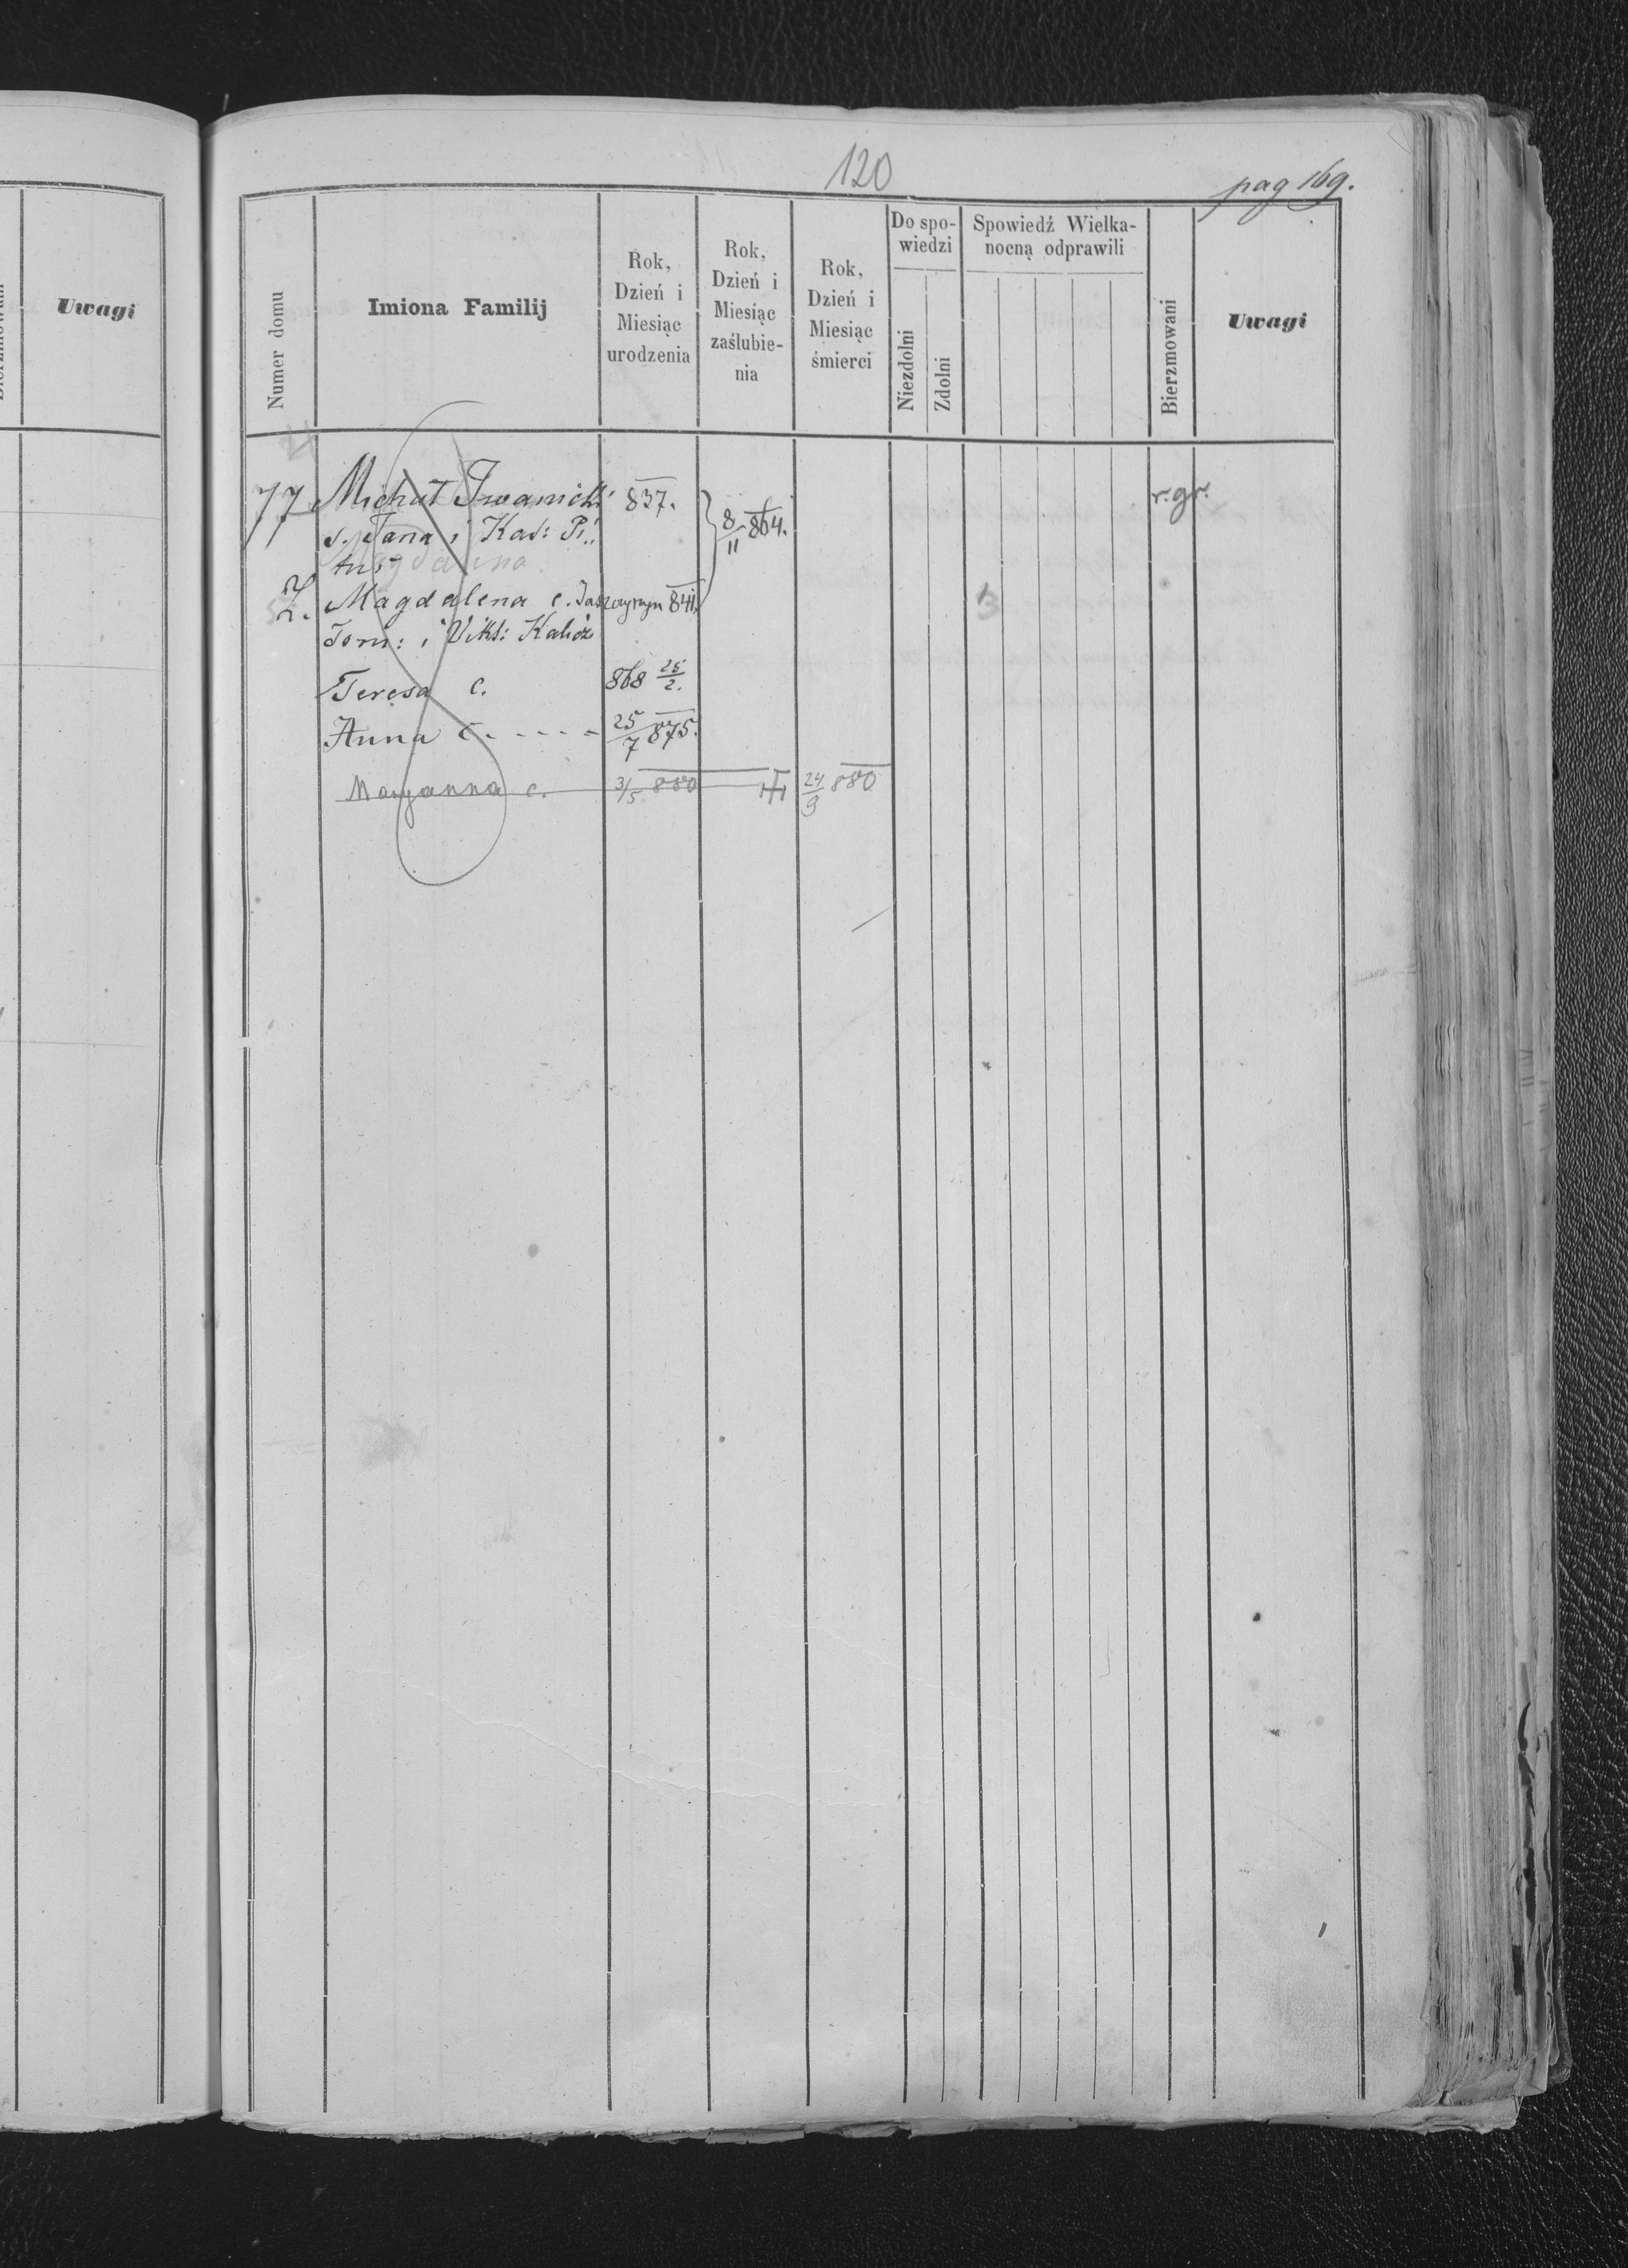 120
pag 169.
Uwagi
Numer domu
Imiona Familij
Rok,
Dzień i
Miesiąc
urodzenia
Rok,
Dzień i
Miesiąc
zaślubie-
nia
Rok,
Dzień i
Miesiąc
śmierci
Do spo-
wiedzi
Niezdolni
Zdolni
Spowiedź Wielka-
nocną odprawili
Bierzmowani
Uwagi
77 Michał Iwanicki 837. r.gr.
s. Jana i Kat: Pi.. 8/11 864.
Magdalena c. 841.
Tom: i Wikt:
Teresa c. 868 25/2.
Anna c. - - - - 25/7 875.
Maryanna c. 3/5 880 24/9 880